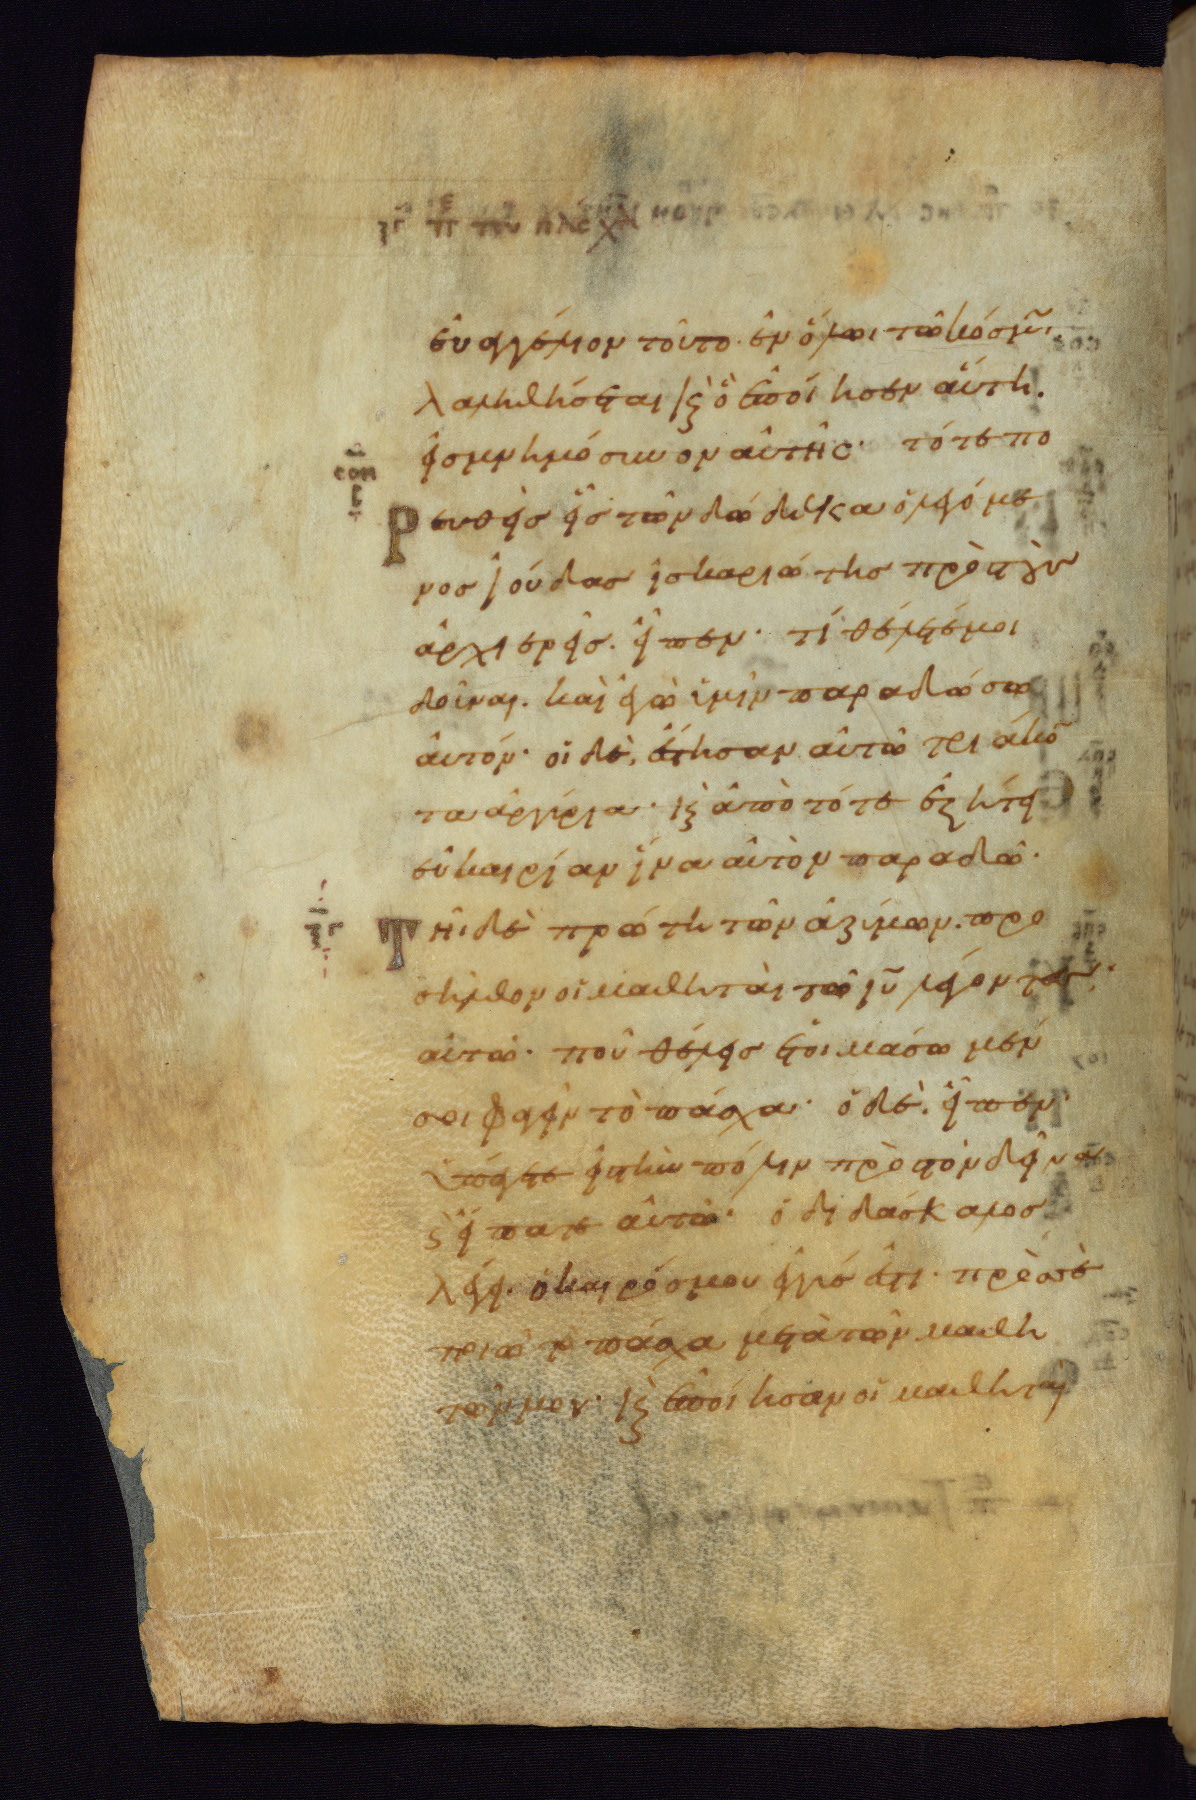 εὐαγγέλιον τοῦτο ἐν ὅλωι τῶ κόσμω·
λαληθήσεται κ(αὶ) ὃ ἐποίησεν αὕτη.
εἰς μνημόσυνον αὐτῆς· τότε πο
ρευθεὶς εἷς τῶν δώδεκα ὁ λεγόμε
νος ἰούδας ἰσκαριώτης πρὸς τοὺς
ἀρχιερεῖς. εἶπεν· τί θέλετέ μοι
δοῦναι. καὶ ἐγὼ ὑμῖν παραδώσω
αὐτόν· οἱ δὲ, ἔστησαν αὐτῶ τριάκο
τα ἀργύρια· κ(αὶ) ἀπὸ τότε ἐζήτει
εὐκαιρίαν ἵνα αὐτὸν παραδῶ·
Τῆι δὲ πρώτη τῶν ἀζύμων. προ
σῆλθον οἱ μαθηταὶ τῶ ιῡ λέγοντες
αὐτῶ· ποῦ θέλεις ἑτοιμάσωμέν
σοι φαγεῖν τὸ πάσχα· ὁ δὲ, εἶπεν
ὑπάγετε εἰς τὴν πόλιν πρὸς τὸν δεῖνα
κ(αὶ) εἴπατε αὐτῶ· ὁ διδάσκαλος
λέγει. ὁ καιρός μου ἐγγύς ἐστι· πρὸς σὲ
ποιῶ τὸ πάσχα μετὰ τῶν μαθη
τῶν μου· κ(αὶ) ἐποίησαν οἱ μαθηταὶ